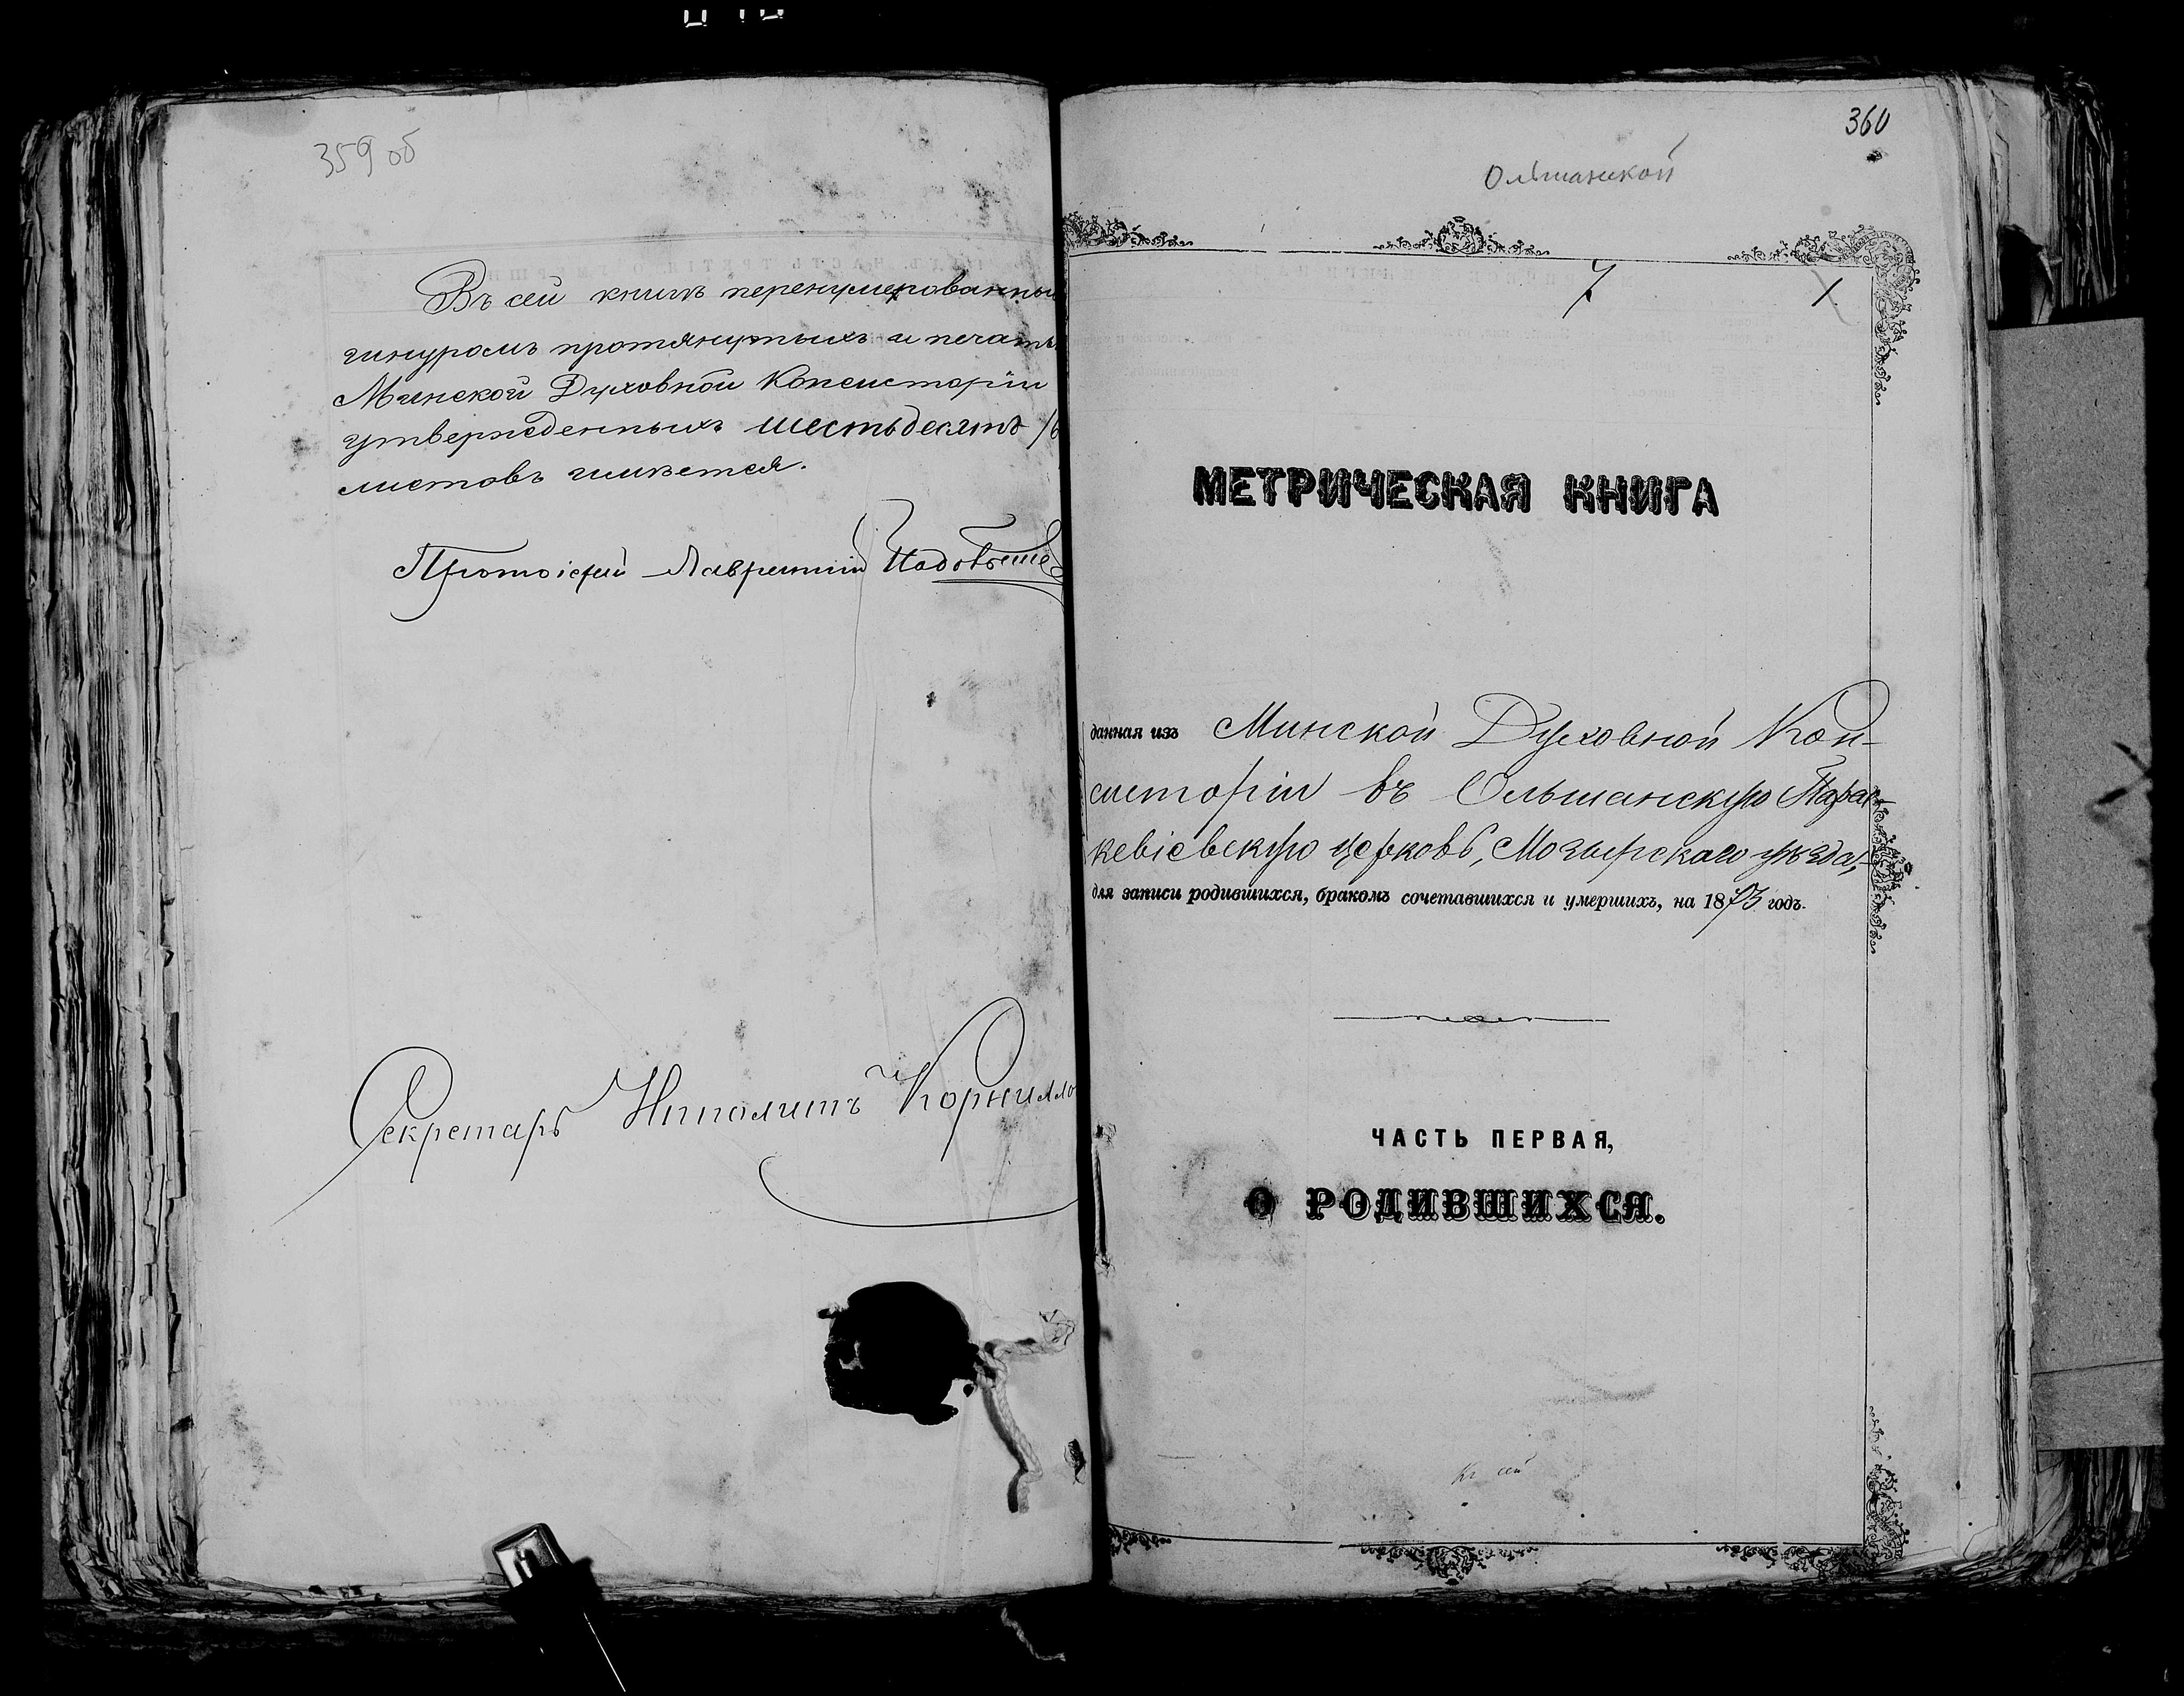 359 об
Въ сей книгѣ перенумерованны
шнуромъ протянутыхъ и печать
Минской Духовной Консисторіи
утвержденныхъ шестьдесятъ /6
листовъ имѣется.
Протоіерей Лаврентій
Секретарь Ипполитъ Корнилло
360
Ольшанской
7 1
МЕТРИЧЕСКАЯ КНИГА
данная изъ Минской Духовной Кон-
систоріи въ Ольшанскую Парас-
кевіевскую церковь, Мозырскаго уѣзда,
для записи родившихся, бракомъ сочетавшихся и умершихъ, на 1873 годъ.
ЧАСТЬ ПЕРВАЯ,
О РОДИВШИХСЯ.
Къ сей